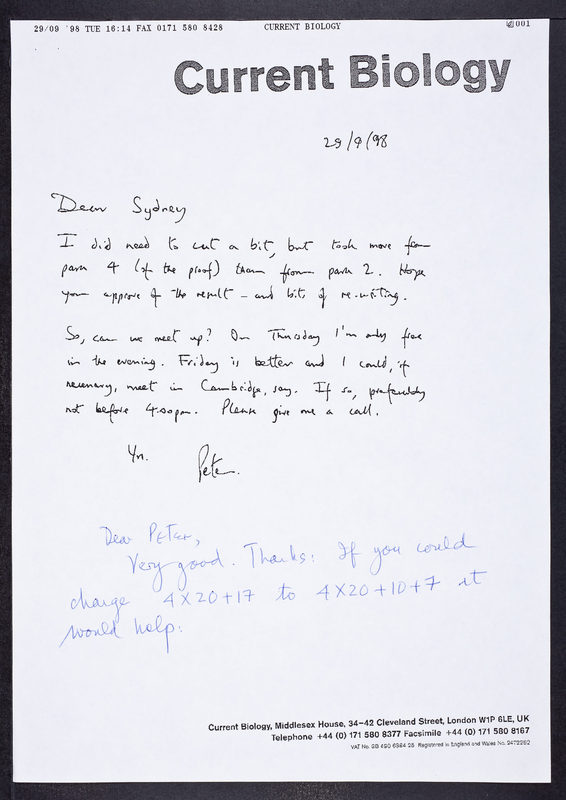 29/09 '98 TUE 16:14 FAX 0171 580 8428 CURRENT BIOLOGY 001
Current Biology
29/9/98
Dear Sydney
I did need to cut a bit, but took more from
para 4 (of the proof) than from para 2. Hope
you approve of the result – and bits of re-writing.
So, can we meet up? On Thursday I'm only free
in the evening. Friday is better and I could, if
necessary, meet in Cambridge, say. If so, preferably
not before 4.00pm. Please give me a call.
Yrs. Peter.
Dear Peter,
Very good. Thanks: If you could
change 4X20+17 to 4X20+10+7 it
would help.
Current Biology, Middlesex House, 34–42 Cleveland Street, London W1P 6LE, UK
Telephone +44 (0) 171 580 8377 Facsimile +44 (0) 171 580 8167
VAT No. GB 490 6384 25 Registered in England and Wales No.